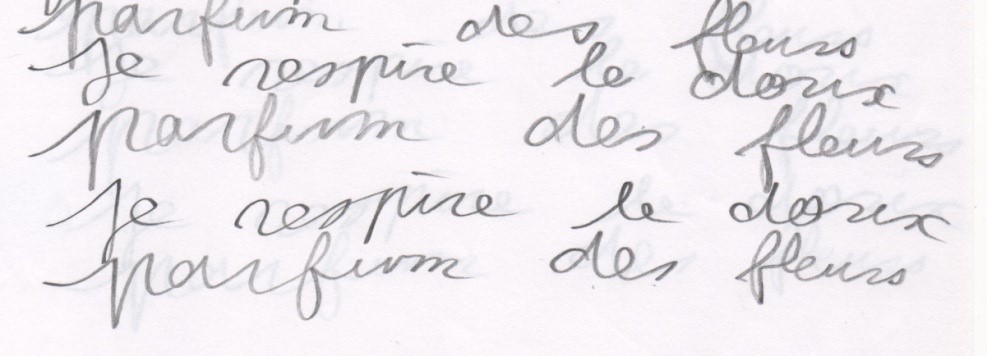 parfum des fleurs
Je respire le doux
parfum des fleurs
Je respire le doux
parfum des fleurs